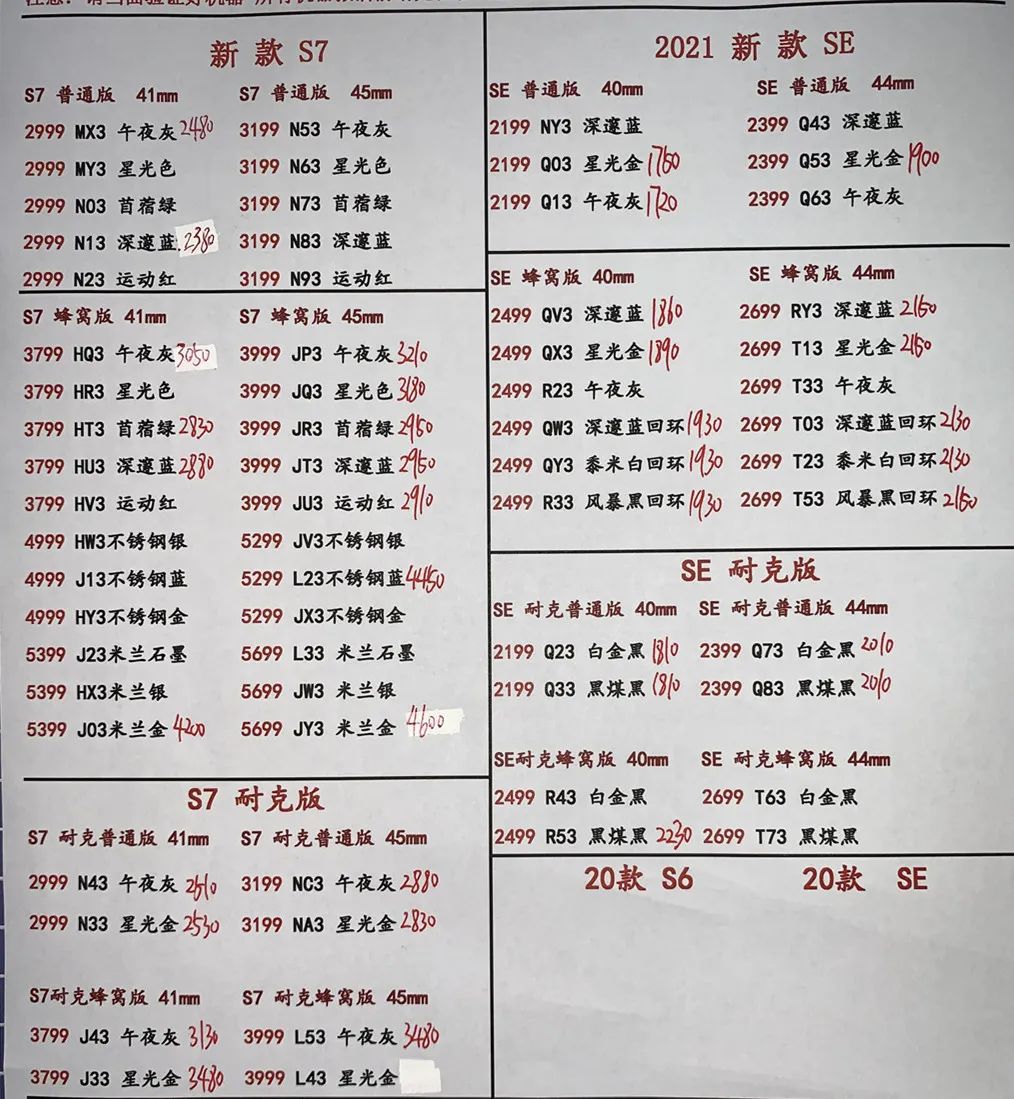 注意：请当面验证好机器
新 款 S7
S7 普通版 41mm S7 普通版 45mm
2999 MX3 午夜灰 2480 3199 N53 午夜灰
2999 MY3 星光色 3199 N63 星光色
2999 N03 首蓿绿 3199 N73 首蓿绿
2999 N13 深邃蓝 2380 3199 N83 深邃蓝
2999 N23 运动红 3199 N93 运动红
S7 蜂窝版 41mm S7 蜂窝版 45mm
3799 HQ3 午夜灰 3050 3999 JP3 午夜灰 3210
3799 HR3 星光色 3999 JQ3 星光色 3180
3799 HT3 首蓿绿 2830 3999 JR3 首蓿绿 2950
3799 HU3 深邃蓝 2880 3999 JT3 深邃蓝 2950
3799 HV3 运动红 3999 JU3 运动红 2910
4999 HW3不锈钢银 5299 JV3不锈钢银
4999 J13不锈钢蓝 5299 L23不锈钢蓝 4450
4999 HY3不锈钢金 5299 JX3不锈钢金
5399 J23米兰石墨 5699 L33 米兰石墨
5399 HX3米兰银 5699 JW3 米兰银
5399 J03米兰金 4200 5699 JY3 米兰金 4600
S7 耐克版
S7 耐克普通版 41mm S7 耐克普通版 45mm
2999 N43 午夜灰 3199 NC3 午夜灰 2880
2999 N33 星光金 2530 3199 NA3 星光金 2830
S7耐克蜂窝版 41mm S7 耐克蜂窝版 45mm
3799 J43 午夜灰 3130 3999 L53 午夜灰 3480
3799 J33 星光金 3480 3999 L43 星光金
2021 新 款 SE
SE 普通版 40mm SE 普通版 44mm
2199 NY3 深邃蓝 2399 Q43 深邃蓝
2199 Q03 星光金 1760 2399 Q53 星光金 1900
2199 Q13 午夜灰 1720 2399 Q63 午夜灰
SE 蜂窝版 40mm SE 蜂窝版 44mm
2499 QV3 深邃蓝 1860 2699 RY3 深邃蓝 2160
2499 QX3 星光金 1890 2699 T13 星光金 2160
2499 R23 午夜灰 2699 T33 午夜灰
2499 QW3 深邃蓝回环 1930 2699 T03 深邃蓝回环 2130
2499 QY3 黍米白回环 1930 2699 T23 黍米白回环 2130
2499 R33 风暴黑回环 1930 2699 T53 风暴黑回环 2160
SE 耐克版
SE 耐克普通版 40mm SE 耐克普通版 44mm
2199 Q23 白金黑 1810 2399 Q73 白金黑 2010
2199 Q33 黑煤黑 1810 2399 Q83 黑煤黑 2010
SE耐克蜂窝版 40mm SE 耐克蜂窝版 44mm
2499 R43 白金黑 2699 T63 白金黑
2499 R53 黑煤黑 2230 2699 T73 黑煤黑
20款 S6 20款 SE